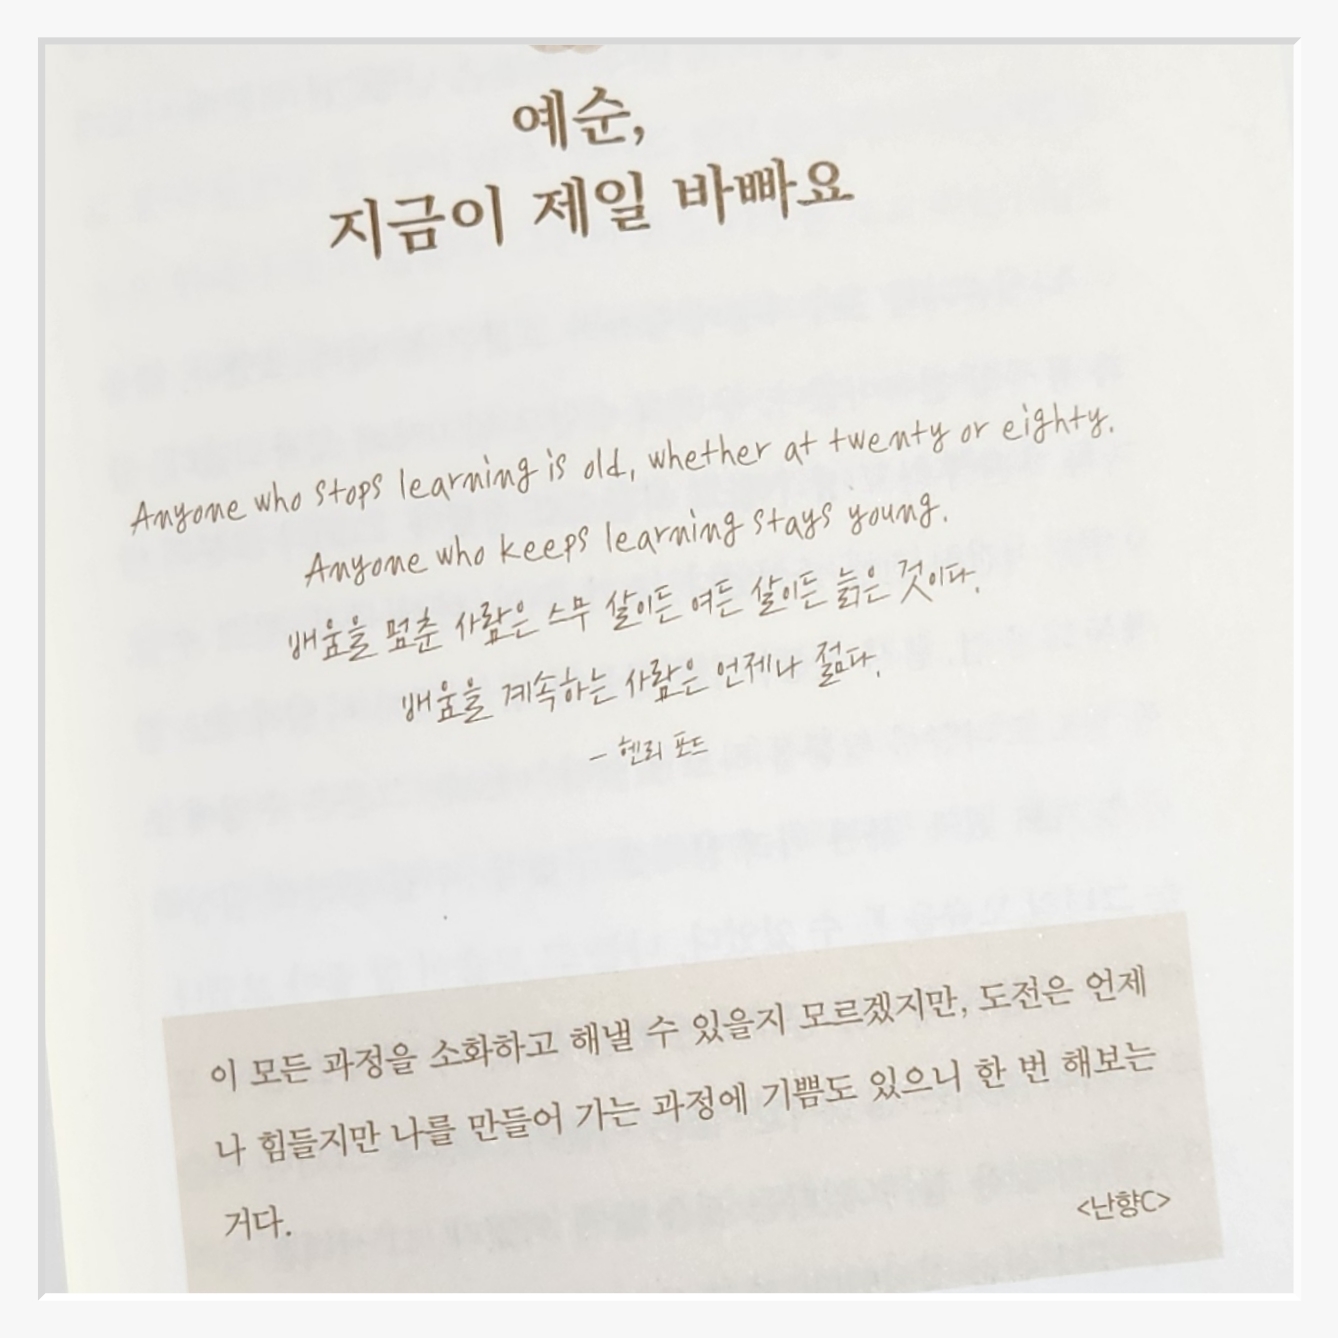 예순,
지금이 제일 바빠요
Anyone who stops learning is old, whether at twenty or eighty.
Anyone who keeps learning stays young.
배움을 멈춘 사람은 스무 살이든 여든 살이든 늙은 것이다.
배움을 계속하는 사람은 언제나 젊다.
- 헨리 포드
이 모든 과정을 소화하고 해낼 수 있을지 모르겠지만, 도전은 언제
나 힘들지만 나를 만들어 가는 과정에 기쁨도 있으니 한 번 해보는
거다.
<난향C>